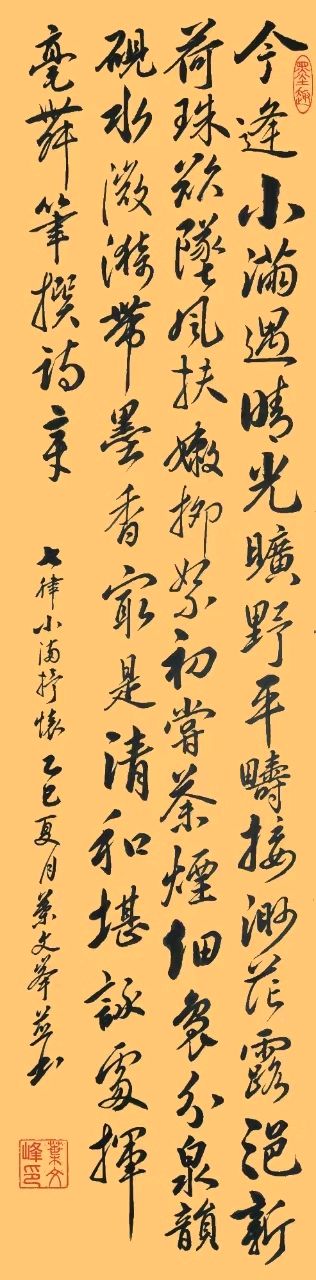 墨趣
今逢小滿遇晴光曠野平疇接渺茫露浥新
荷珠欲墜風扶嫩柳絮初嘗茶煙細裊分泉韻
硯水微漪帶墨香最是清和堪詠處揮
毫舞筆撰詩章
七律小滿抒懷乙巳夏月葉文峯並書
葉文峰印